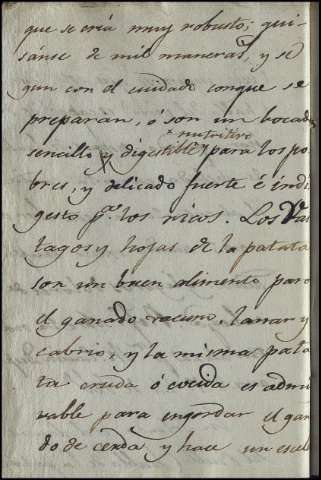 que se cria muy robusto; gui-
sánse de mil maneras, y se
gun con el cuidado conque se
preparan, ó son un bocado
y nutritivo
sencillo y digestible, para los po
bres, y delicado fuerte é indi
gesto p.ª los ricos. Los Vas
tagos y hojas de la patata
son un buen alimento para
el ganado vacuno, lanar y
cabrio, y la misma pata
ta cruda ó cocida es admi
rable para engordar el gan
do de cerda, y hace un escel